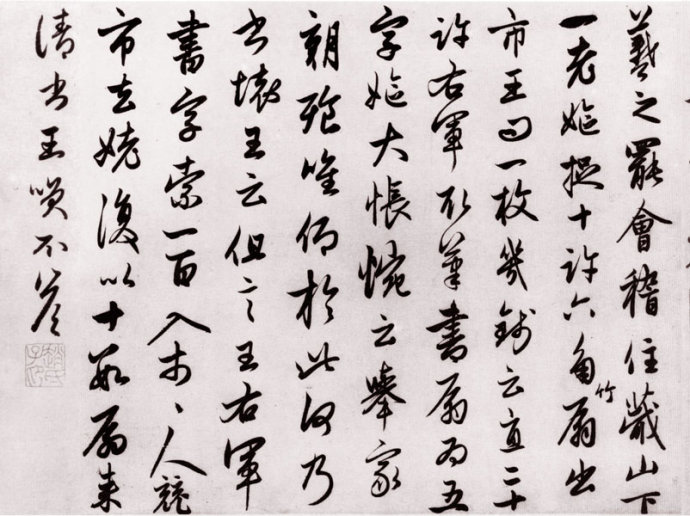 羲之罷會稽住蕺山下
一老嫗捉十許六角竹扇出
市王問一枚幾錢云直二十
許右軍取筆書扇為五
字嫗大悵惋云舉家
朝飱唯仰於此何乃
書壞王云但言王右軍
書字索一百入市市人競
市去姥復以十數扇来
請書王咲不答
趙氏子昂